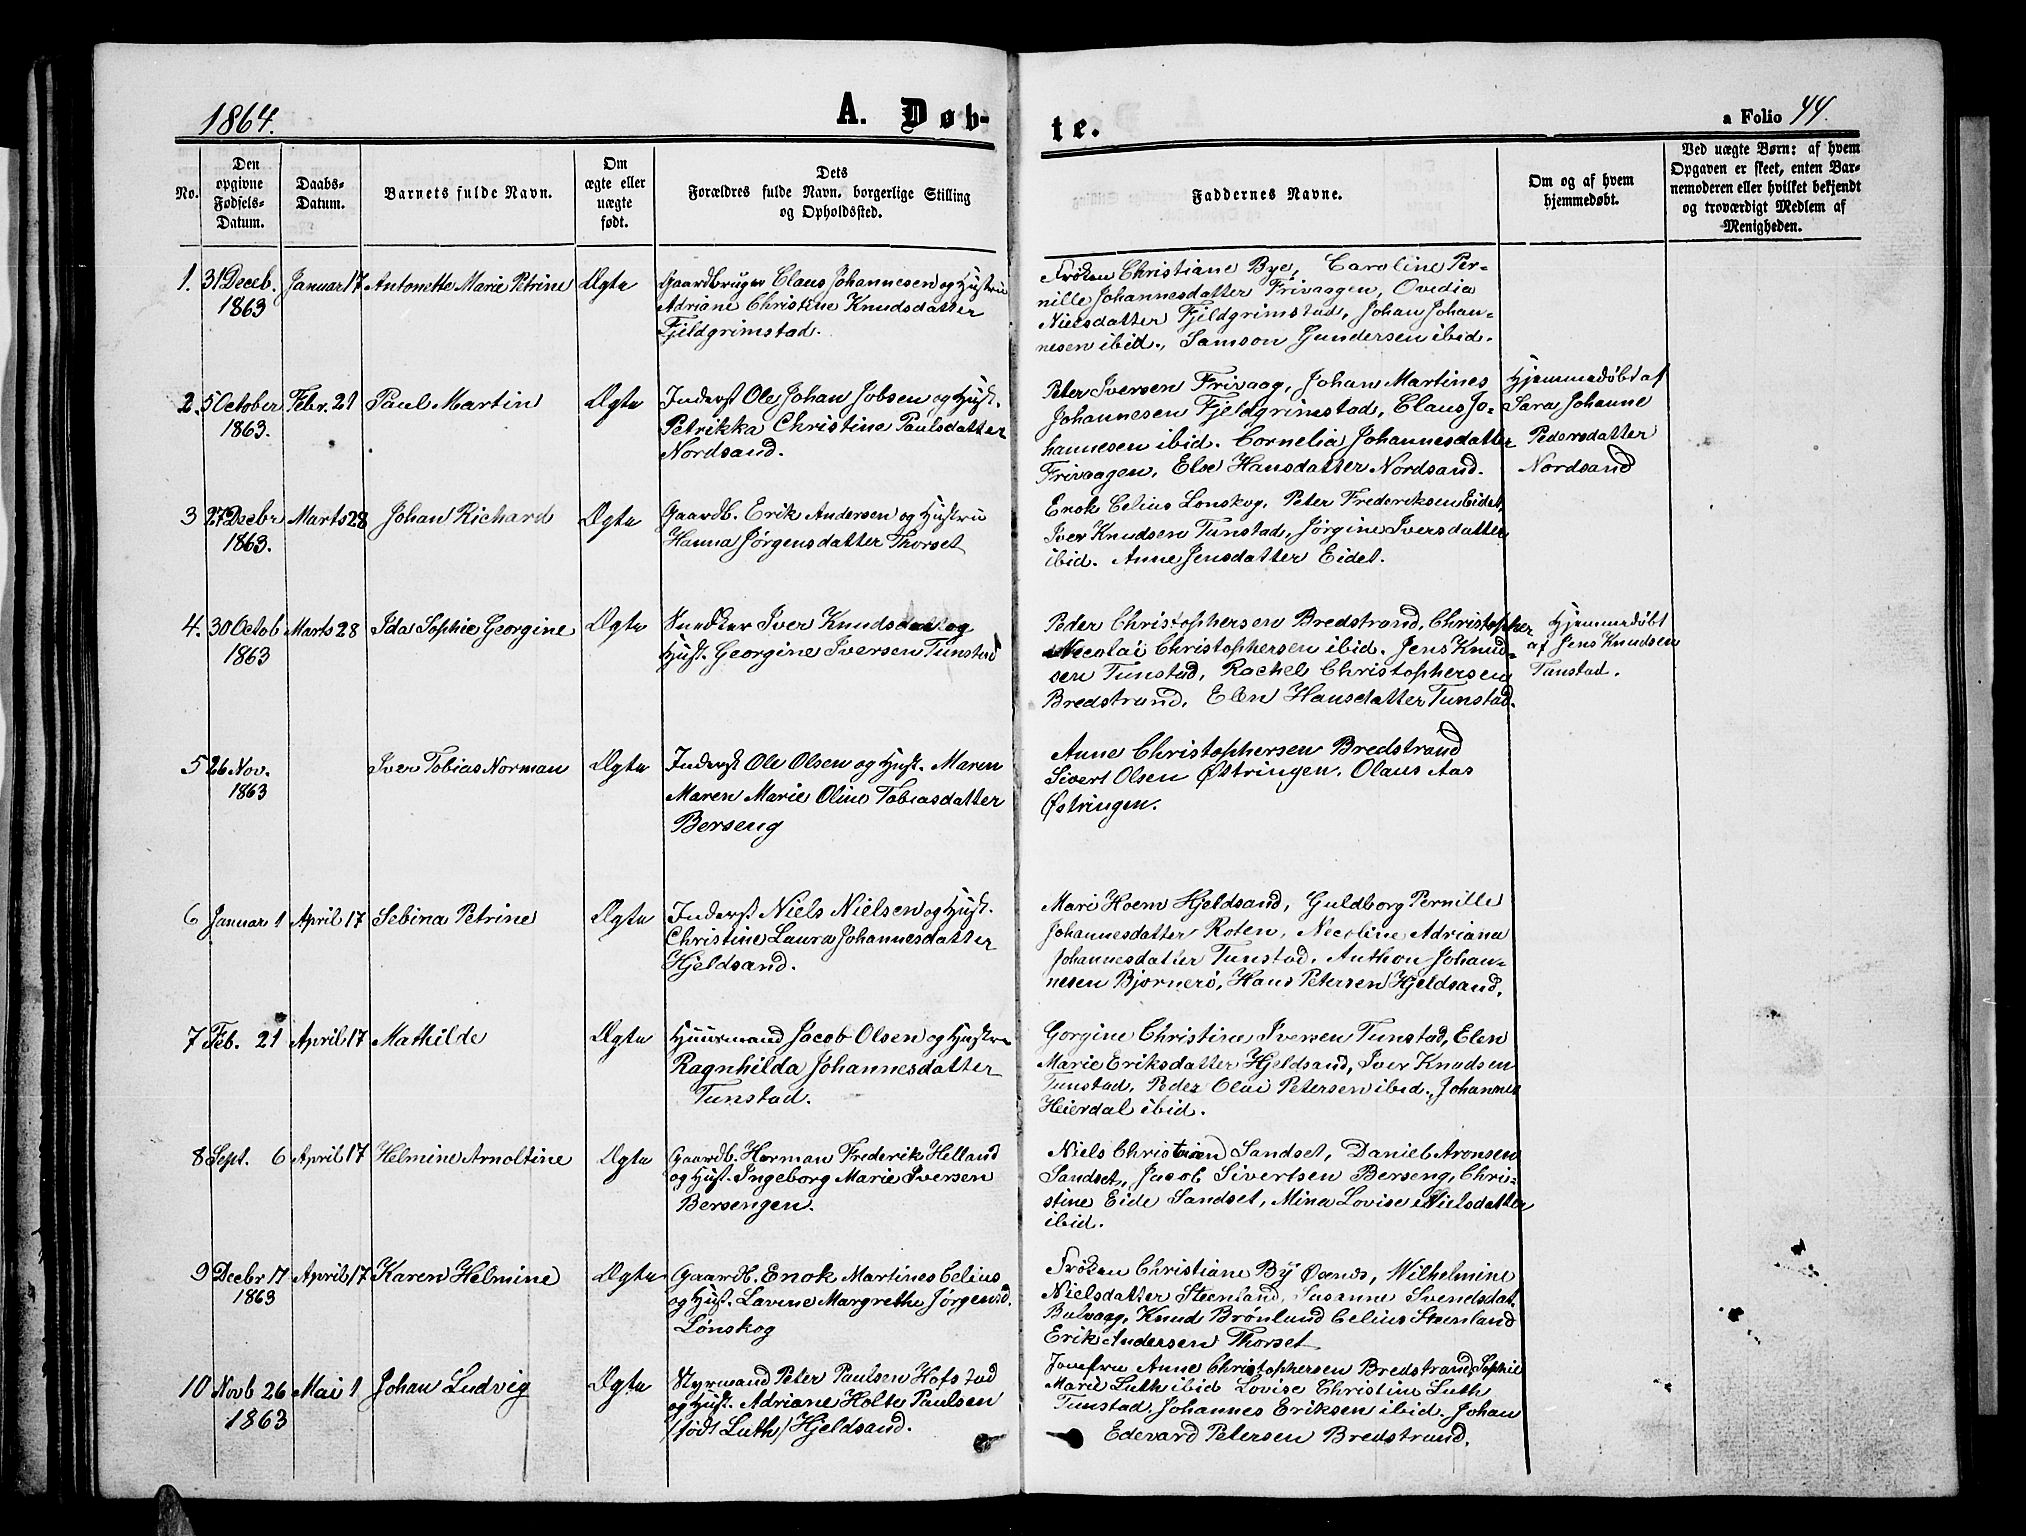 1864.
A. Døb-
te.
a Folio 44.
No.
Den
opgivne
Fødsels-
Datum.
Daabs-
Datum.
Barnets fulde Navn.
Om
ægte eller
uægte
født.
Dets
Forældres fulde Navn, borgerlige Stilling
og Opholdssted.
Faddernes Navne.
Om og af hvem
hjemmedøbt.
Ved uægte Børn: af hvem
Opgaven er skeet, enten Bar-
nemoderen eller hvilket bekjendt
og troværdigt Medlem af
Menigheden.
1. 31 Deceb. 1863
Januar 17
Antonette Marie Petrine
Ægte
Gaardbruger Claus Johannesen og Hustru
Adriane Christine Knudsdatter
Fjeldgrimstad.
Frøken Christiane Bye, Caroline Per-
nille Johannesdatter Frivaagen, Ovedia
Nielsdatter Fjeldgrimstad, Johan Johan-
nesen ibid., Samson Gundersen ibid.
2. 5 October 1863.
Febr. 21
Paul Martin
Ægte
Inderst Ole Johan Jobsen og Hust.
Petrikka Christine Paulsdatter
Nordsand.
Peter Iversen Frivaag, Johan Martines
Johannesen Fjeldgrimstad, Claus Jo-
hannesen ibid. Cornelia Johannesdatter
Frivaagen, Else Hansdatter Nordsand.
Hjemmedøbt af
Sara Johanne
Pedersdatter
Nordsand
3 27 Decbr 1863.
Marts 28
Johan Richard
Ægte
Gaardb. Erik Andersen og Hustru
Hanna Jørgensdatter Thorset
Enok Celius Lonskog, Peter Frederiksen Eidet,
Iver Knudsen Tunstad, Jørgine Iversdatter
ibid. Anne Jensdatter Eidet.
4. 30 Octob 1863
Marts 28
Ida Sophie Georgine
Ægte
Snedker Iver Knudsen og
Hust. Georgine Iversen Tunstad
Peder Christophersen Bredstrand, Christopher
Necolai Christophersen ibid. Jens Knud-
sen Tunstad, Rachel Christophersen
Bredstrand, Elen Hansdatter Tunstad.
Hjemmedøbt
af Jens Knudsen
Tunstad.
5 26 Nov. 1863
Iver Tobias Norman
Ægte
Inderst Ole Olsen og Hust. Maren
Maren Marie Oline Tobiasdatter
Berseng
Anne Christophersen Bredstrand
Sivert Olsen Østringen, Olaus Aas
Østringen.
6 Januar 1
April 17
Sebina Petrine
Ægte
Inderst Niels Nielsen og Hust.
Christine Laura Johannesdatter
Hjeldsand.
Mari Hoem Hjeldsand, Guldborg Pernille
Johannesdatter Roten, Necoline Adriana
Johannesdatter Tunstad, Anthon Johan-
nesen Bjørnerø, Hans Petersen Hjeldsand.
7 Feb. 21
April 17
Mathilde
Ægte
Huusmand Jacob Olsen og Hustru
Ragnhilda Johannesdatter
Tunstad.
Gorgine Christine Iversen Tunstad, Elen
Marie Eriksdatter Hjeldsand, Iver Knudsen
Tunstad, Peder Olai Petersen ibid., Johannes
Heierdal ibid.
8 Sept. 6
April 17
Helmine Arnoltine
Ægte
Gaardb. Herman Frederik Helland
og Hust. Ingeborg Marie Iversen
Bersengen.
Niels Christian Sandset, Daniel Aronsen
Sandset, Jacob Sivertsen Berseng, Chri-
stine Eide Sandset, Mina Lovise Nielsdatter
ibid.
9 Decbr 17 1863
April 17
Karen Helmine
Ægte
Gaardb. Enok Martines Celius
og Hust. Lavine Margrethe Jørgensd.
Lønskog
Frøken Christiane By Øsnes, Wilhelmine
Nielsdatter Steenland, Susanne Svendsdat.
Bulvaag, Knud Brønlund Celius Steenland
Erik Andersen Thorset
10 Novb 26 1863
Mai 1
Johan Ludvig
Ægte
Styrmand Peter Paulsen Hofstad
og Hust. Adriane Holte Paulsen
/født Luth/ Hjeldsand.
Jomfru Anne Christophersen Bredstrand, Sophie
Marie Luth ibid Lovise Christine Luth
Tunstad. Johannes Eriksen ibid. Johan
Edevard Petersen Bredstrand.